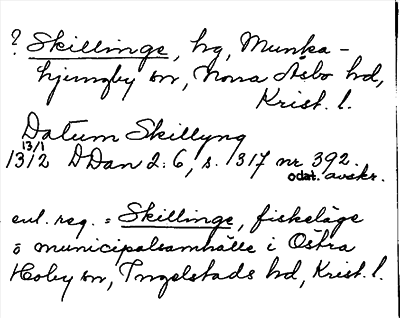 ? Skillinge, hg, Munka-
hjungby sn, Norra Åsbo hd,
Krist. l.
Datum Skillyng
13/1
1312 DDan 2:6, s. 317 nr 392.
odat. avskr.
enl. reg. = Skillinge, fiskeläge
o municipalsamhälle i Östra
Hoby sn, Ingelstads hd, Krist. l.